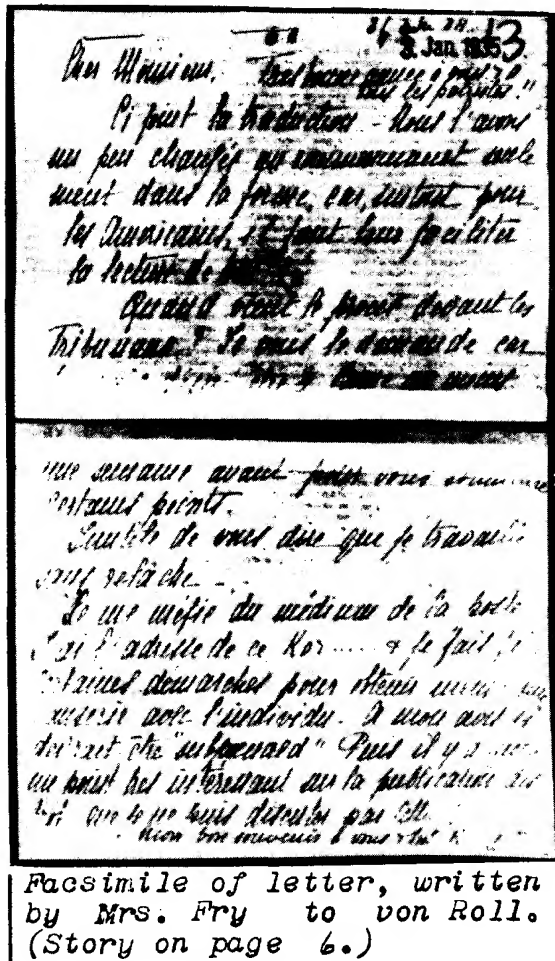 3 Jan 1935 13
Cher Monsieur.
tous les
Ci joint la traduction - Nous l'avons
un peu changée
ment dans la forme, car, surtout pour
les Américains, il faut leur faciliter
la lecture de
Quand vient le procès devant les
Tribunaux? Je vous le demande car
une semaine avant pour vous
certains points.
Inutile de vous dire que je travaille
sans relâche
Je me méfie du médium de la poste
J'ai l'adresse de ce Kor..... & je fais
certaines démarches pour obtenir
causerie avec l'individu. A mon avis il
devrait être "subpoenaed" Puis il y a
un point très intéressant sur la publication des
que je ne puis discuter par
mon bon souvenir à vous
Facsimile of letter, written
by Mrs. Fry to von Roll.
(Story on page 6.)